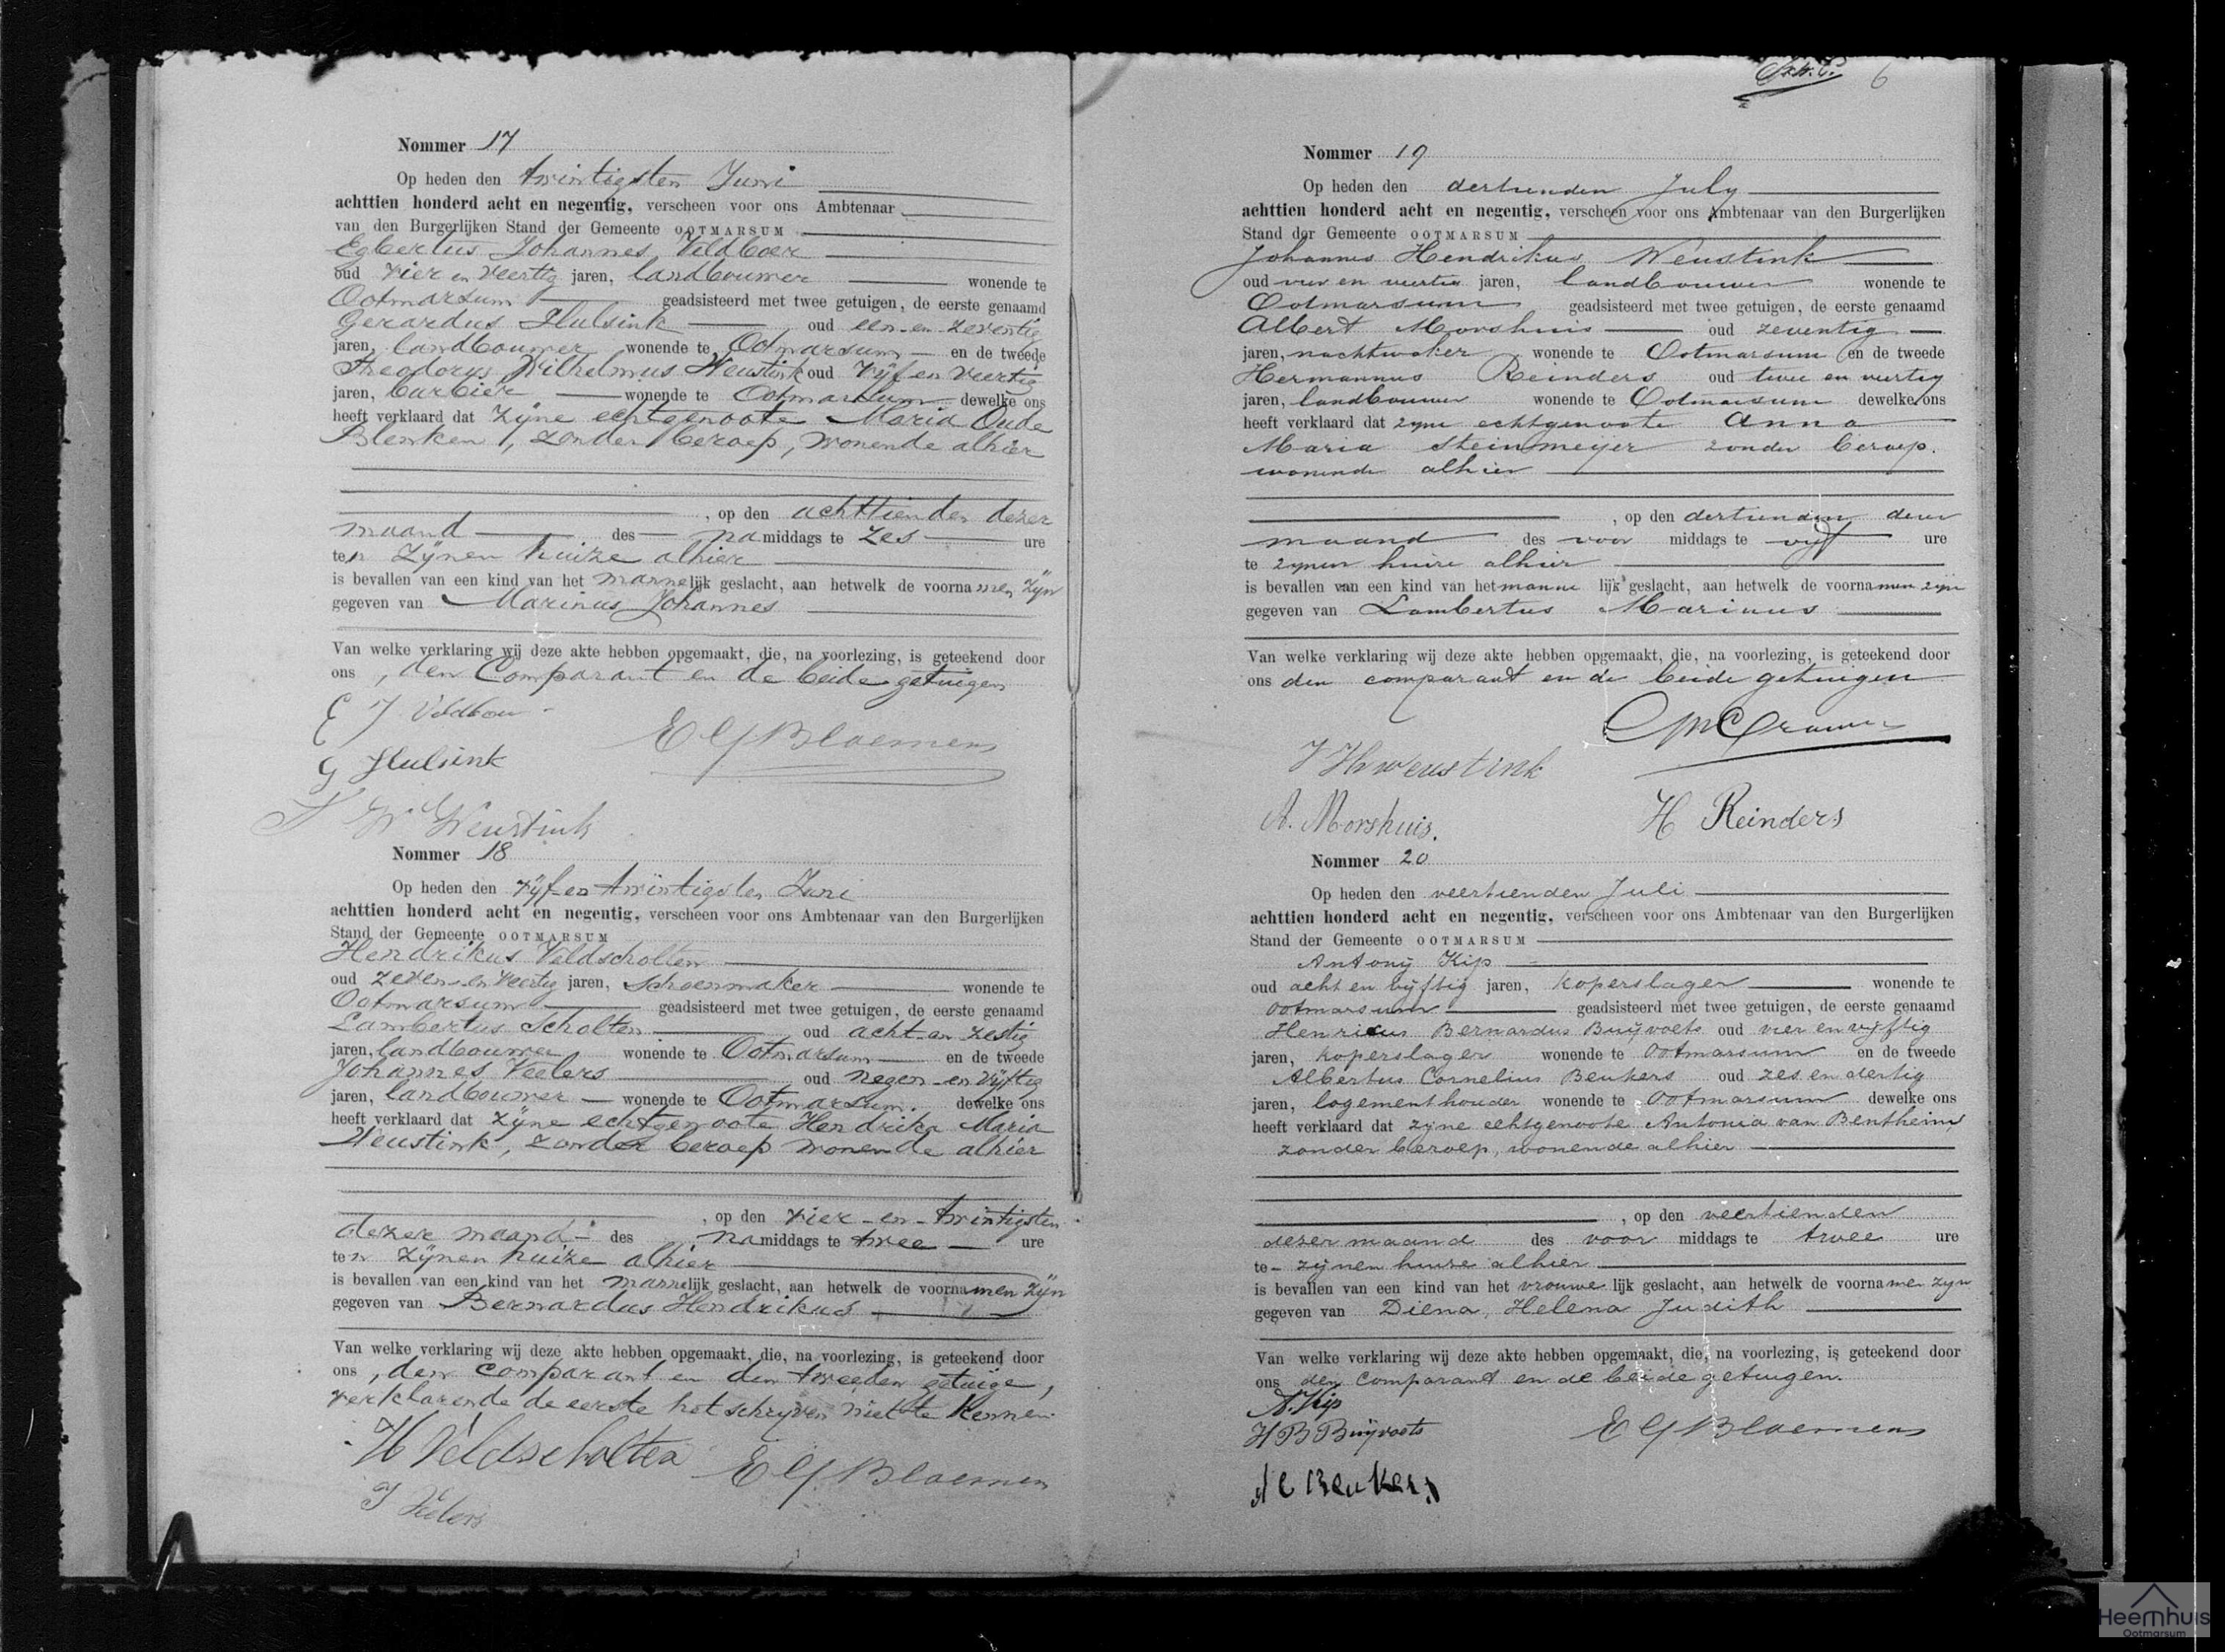 Nommer 17
Op heden den twintigsten Juni
achttien honderd acht en negentig, verscheen voor ons Ambtenaar
van den Burgerlijken Stand der Gemeente OOTMARSUM
Egbertus Johannes Veldboer
oud vier en veertig jaren, landbouwer wonende te
Ootmarsum geadsisteerd met twee getuigen, de eerste genaamd
Gerardus Hulsink oud een-en-zeventig
jaren, landbouwer wonende te Ootmarsum en de tweede
Theodorus Wilhelmus Weustink oud vijf en veertig
jaren, barbier wonende te Ootmarsum dewelke ons
heeft verklaard dat zijne echtgenoote Maria Oude
Blenken, zonder beroep, wonende alhier
, op den achttienden dezer
maand des namiddags te zes ure
ten zijnen huize alhier
is bevallen van een kind van het mannelijk geslacht, aan hetwelk de voornamen zijn
gegeven van Marinus Johannes
Van welke verklaring wij deze akte hebben opgemaakt, die, na voorlezing, is geteekend door
ons , den Comparant en de beide getuigen
E J Veldboer
E G Bloemen
G Hulsink
T W Weustink
Nommer 18
Op heden den vijf en twintigsten Juni
achttien honderd acht en negentig, verscheen voor ons Ambtenaar van den Burgerlijken
Stand der Gemeente OOTMARSUM
Hendrikus Veldscholten
oud zeven-en veertig jaren, schoenmaker wonende te
Ootmarsum geadsisteerd met twee getuigen, de eerste genaamd
Lambertus Scholten oud acht-en zestig
jaren, landbouwer wonende te Ootmarsum en de tweede
Johannes Veelers oud negen-en vijftig
jaren, landbouwer wonende te Ootmarsum. dewelke ons
heeft verklaard dat zijne echtgenoote Hendrika Maria
Weustink, zonder beroep wonende alhier
, op den vier-en-twintigsten
dezer maand des namiddags te twee ure
ten zijnen huize alhier
is bevallen van een kind van het mannelijk geslacht, aan hetwelk de voornamen zijn
gegeven van Bernardus Hendrikus
Van welke verklaring wij deze akte hebben opgemaakt, die, na voorlezing, is geteekend door
ons , den comparant en den tweeden getuige,
verklarende de eerste het schrijven niet te kennen
H Veldscholten E G Bloemen
J Veelers
6
Nommer 19
Op heden den dertienden July
achttien honderd acht en negentig, verscheen voor ons Ambtenaar van den Burgerlijken
Stand der Gemeente OOTMARSUM
Johannes Hendrikus Weustink
oud vier en veertig jaren, landbouwer wonende te
Ootmarsum geadsisteerd met twee getuigen, de eerste genaamd
Albert Morshuis oud zeventig
jaren, nachtwaker wonende te Ootmarsum en de tweede
Hermannus Reinders oud twee en veertig
jaren, landbouwer wonende te Ootmarsum dewelke ons
heeft verklaard dat zyne echtgenoote Anna
Maria Steinmeyer zonder beroep.
wonende alhier
, op den dertienden dezer
maand des voor middags te vijf ure
te zynen huize alhier
is bevallen van een kind van het manne lijk geslacht, aan hetwelk de voornamen zijn
gegeven van Lambertus Marinus
Van welke verklaring wij deze akte hebben opgemaakt, die, na voorlezing, is geteekend door
ons den comparant en de beide getuigen
J H Weustink
A. Morshuis. H Reinders
Nommer 20
Op heden den veertienden Juli
achttien honderd acht en negentig, verscheen voor ons Ambtenaar van den Burgerlijken
Stand der Gemeente OOTMARSUM
Antony Kip
oud acht en vijftig jaren, koperslager wonende te
Ootmarsum geadsisteerd met twee getuigen, de eerste genaamd
Henricus Bernardus Buijvoets oud vier en vijftig
jaren, koperslager wonende te Ootmarsum en de tweede
Albertus Cornelius Beukers oud zes en dertig
jaren, logementhouder wonende te Ootmarsum dewelke ons
heeft verklaard dat zijne echtgenoote Antonia van Bentheim
zonder beroep, wonende alhier
, op den veertienden
dezer maand des voor middags te twee ure
te zijnen huize alhier
is bevallen van een kind van het vrouwe lijk geslacht, aan hetwelk de voornamen zijn
gegeven van Diena, Helena Judith
Van welke verklaring wij deze akte hebben opgemaakt, die, na voorlezing, is geteekend door
ons den Comparant en de beide getuigen.
A. Kip
H B Buijvoets E G Bloemen
A C Beukers
Heemhuis
Ootmarsum